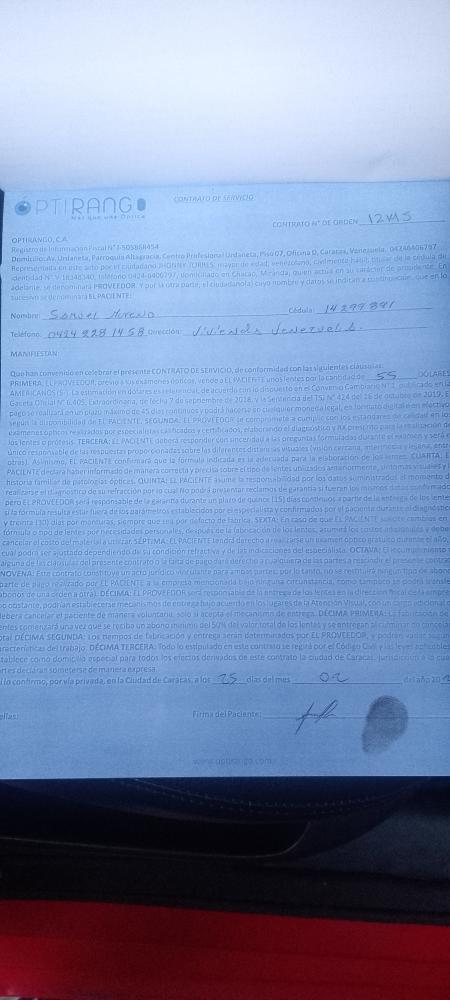 OPTIRANGO
Más que una Óptica
CONTRATO DE SERVICIO
CONTRATO N° DE ORDEN
OPTIRANGO, C.A
Registro de Información Fiscal N° J-505868454
Domicilio: Av. Urdaneta, Parroquia Altagracia, Centro Profesional Urdaneta, Piso 07, Oficina D, Caracas, Venezuela. 04246406797
Representada en este acto por el ciudadano JHONNY TORRES, mayor de edad, venezolano, civilmente hábil, titular de la cédula de
identidad N° V-18348340, teléfono 0424-6406797, domiciliado en Chacao, Miranda, quien actúa en su carácter de presidente. En
adelante, se denominará PROVEEDOR. Y por la otra parte, el ciudadano(a) cuyo nombre y datos se indican a continuación, que en lo
sucesivo se denominará EL PACIENTE:
Nombre: Samuel Moreno Cédula: 14299891
Teléfono: 0424 228 1458 Dirección: Vivienda Venezuela.
MANIFIESTAN:
Que han convenido en celebrar el presente CONTRATO DE SERVICIO, de conformidad con las siguientes cláusulas:
PRIMERA: EL PROVEEDOR, previo a los exámenes ópticos, vende a EL PACIENTE unos lentes por la cantidad de 55 DÓLARES
AMERICANOS ($). La estimación en dólares es referencial, de acuerdo con lo dispuesto en el Convenio Cambiario N° 1, publicado en la
Gaceta Oficial N° 6.405, Extraordinaria, de fecha 7 de septiembre de 2018, y la Sentencia del TSJ N° 424 del 16 de octubre de 2019. E
pago se realizará en un plazo máximo de 45 días continuos y podrá hacerse en cualquier moneda legal, en formato digital o en efectivo
según la disponibilidad de EL PACIENTE. SEGUNDA: EL PROVEEDOR se compromete a cumplir con los estándares de calidad en lo
exámenes ópticos realizados por especialistas calificados y certificados, elaborando el diagnóstico y RX prescrito para la realización de
los lentes o prótesis. TERCERA: EL PACIENTE deberá responder con sinceridad a las preguntas formuladas durante el examen y será
único responsable de las respuestas proporcionadas sobre las diferentes distancias visuales (visión cercana, intermedia y lejana, entre
otras). Asimismo, EL PACIENTE confirmará que la fórmula indicada es la adecuada para la elaboración de los lentes. CUARTA: E
PACIENTE declara haber informado de manera correcta y precisa sobre el tipo de lentes utilizados anteriormente, síntomas visuales y
historia familiar de patologías ópticas. QUINTA: EL PACIENTE asume la responsabilidad por los datos suministrados al momento d
realizarse el diagnóstico de su refracción por lo cual No podrá presentar reclamos de garantía si fueron los mismos datos confirmado
pero EL PROVEEDOR será responsable de la garantía durante un plazo de quince (15) días continuos a partir de la entrega de los lente
si la fórmula resulta estar fuera de los parámetros establecidos por el especialista y confirmados por el paciente durante el diagnóstic
y treinta (30) días por monturas, siempre que sea por defecto de fábrica. SEXTA: En caso de que EL PACIENTE solicite cambios en
fórmula o tipo de lentes por necesidades personales, después de la fabricación de los lentes, asumirá los costos adicionales y debe
cancelar el costo del material a utilizar. SÉPTIMA: EL PACIENTE tendrá derecho a realizarse un examen óptico gratuito durante el año,
cual podrá ser ajustado dependiendo de su condición refractiva y de las indicaciones del especialista. OCTAVA: El incumplimiento
alguna de las cláusulas del presente contrato o la falta de pago dará derecho a cualquiera de las partes a rescindir el presente contrat
NOVENA: Este contrato constituye un acto jurídico vinculante para ambas partes; por lo tanto, no se restituirá ningún tipo de abono
parte de pago realizado por EL PACIENTE a la empresa mencionada bajo ninguna circunstancia, como tampoco se podrá transfe
abonos de una orden a otra). DÉCIMA: EL PROVEEDOR será responsable de la entrega de los lentes en la dirección fiscal de la empre
no obstante, podrían establecerse mecanismos de entrega bajo acuerdo en los lugares de la Atención Visual, con un cargo adicional q
deberá cancelar el paciente de manera voluntaria, solo si acepta el mecanismo de entrega. DÉCIMA PRIMERA: La fabricación de
entes comenzará una vez que se reciba un abono mínimo del 50% del valor total de los lentes y se entregan al
tal DÉCIMA SEGUNDA: Los tiempos de fabricación y entrega serán determinados por EL PROVEEDOR, y podrán variar según
racterísticas del trabajo. DÉCIMA TERCERA: Todo lo estipulado en este contrato se regirá por el Código Civil y las leyes aplicables
tablece como domicilio especial para todos los efectos derivados de este contrato la ciudad de Caracas, jurisdicción a la cua
rtes declaran someterse de manera expresa.
lo confirmo, por vía privada, en la Ciudad de Caracas, a los 25 días del mes 02 del año 20
ellas: Firma del Paciente:
www.optirango.com